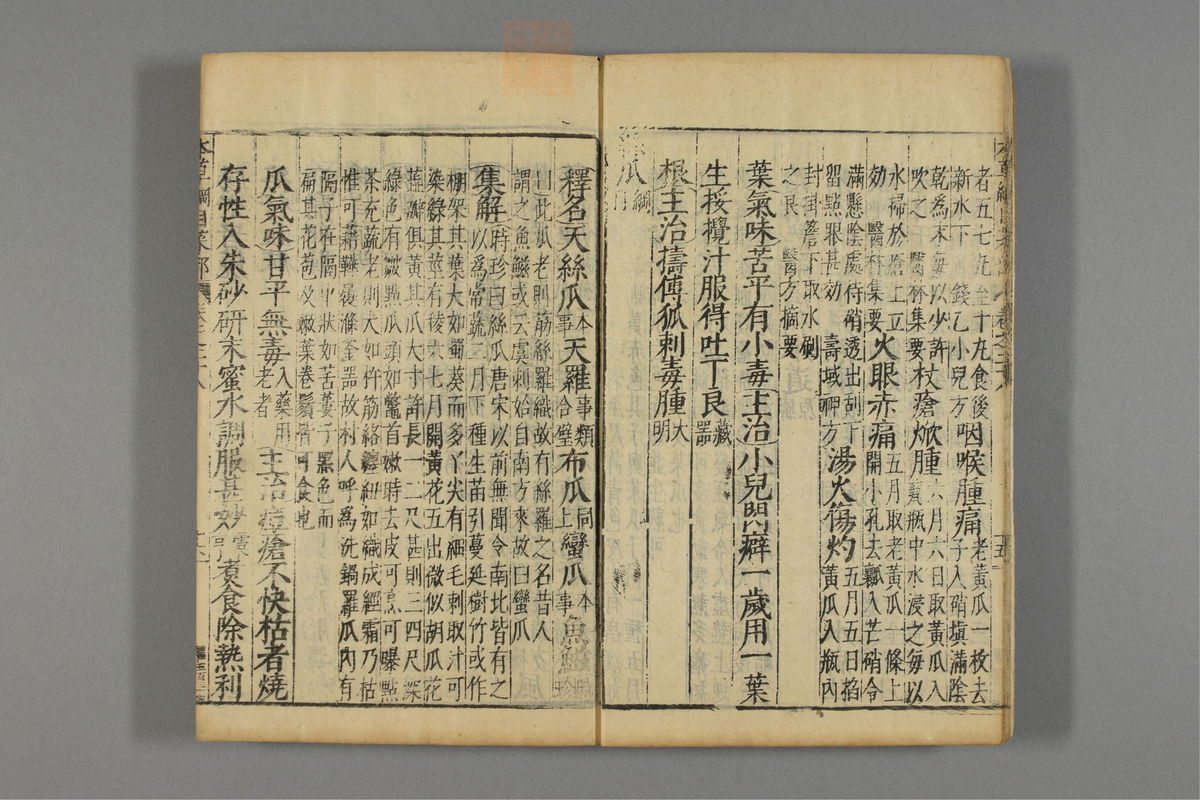 者五七九至十九食後咽喉腫痛老黃瓜一枚去
新水下一錢乙小兒方子入硝填滿陰
乾為末每以少許醫林集要杖瘡焮腫六月六日取黃瓜入
吹之瓷瓶中水浸之每以
水掃於瘡上立五月取老黃瓜一條上
効醫林集要火眼赤痛開小孔去瓤入芒硝令
滿懸陰處待硝透出刮下湯火傷灼五月五日掐
留點眼甚効壽域神方黃瓜入瓶內
封掛簷下取水刷
之良醫方摘要
葉氣味苦平有小毒主治小兒閃癖一歲用一葉
生挼攪汁服得吐下良藏器
根主治擣傅狐刺毒腫大明
絲瓜綱目
釋名天絲瓜本事天羅事類合璧布瓜同上蠻瓜本事魚鰦
曰此瓜老則筋絲羅織故有絲羅之名昔人
謂之魚鰦或云虞刺始自南方來故曰蠻瓜
集解時珍曰絲瓜唐宋以前無聞今南北皆有之
以為常蔬二月下種生苗引蔓延樹竹或作
棚架其葉大如蜀葵而多丫尖有細毛刺取汁可
染綠其莖有稜六七月開黃花五出微似胡瓜花
蕊瓣俱黃其瓜大寸許長一二尺甚則三四尺深
綠色有皺點瓜頭如鱉首嫩時去皮可烹可曝點
茶充蔬老則大如杵筋絡纏紐如織成經霜乃枯
惟可藉鞾履滌釜器故村人呼為洗鍋羅瓜內有
隔子在隔中狀如苦蔞子黑色而
扁其花苞及嫩葉卷鬚皆可食也
瓜氣味甘平無毒入藥用老者主治痘瘡不快枯者燒
存性入朱砂研末蜜水調服甚妙震亨煮食除熱利
本草綱目菜部